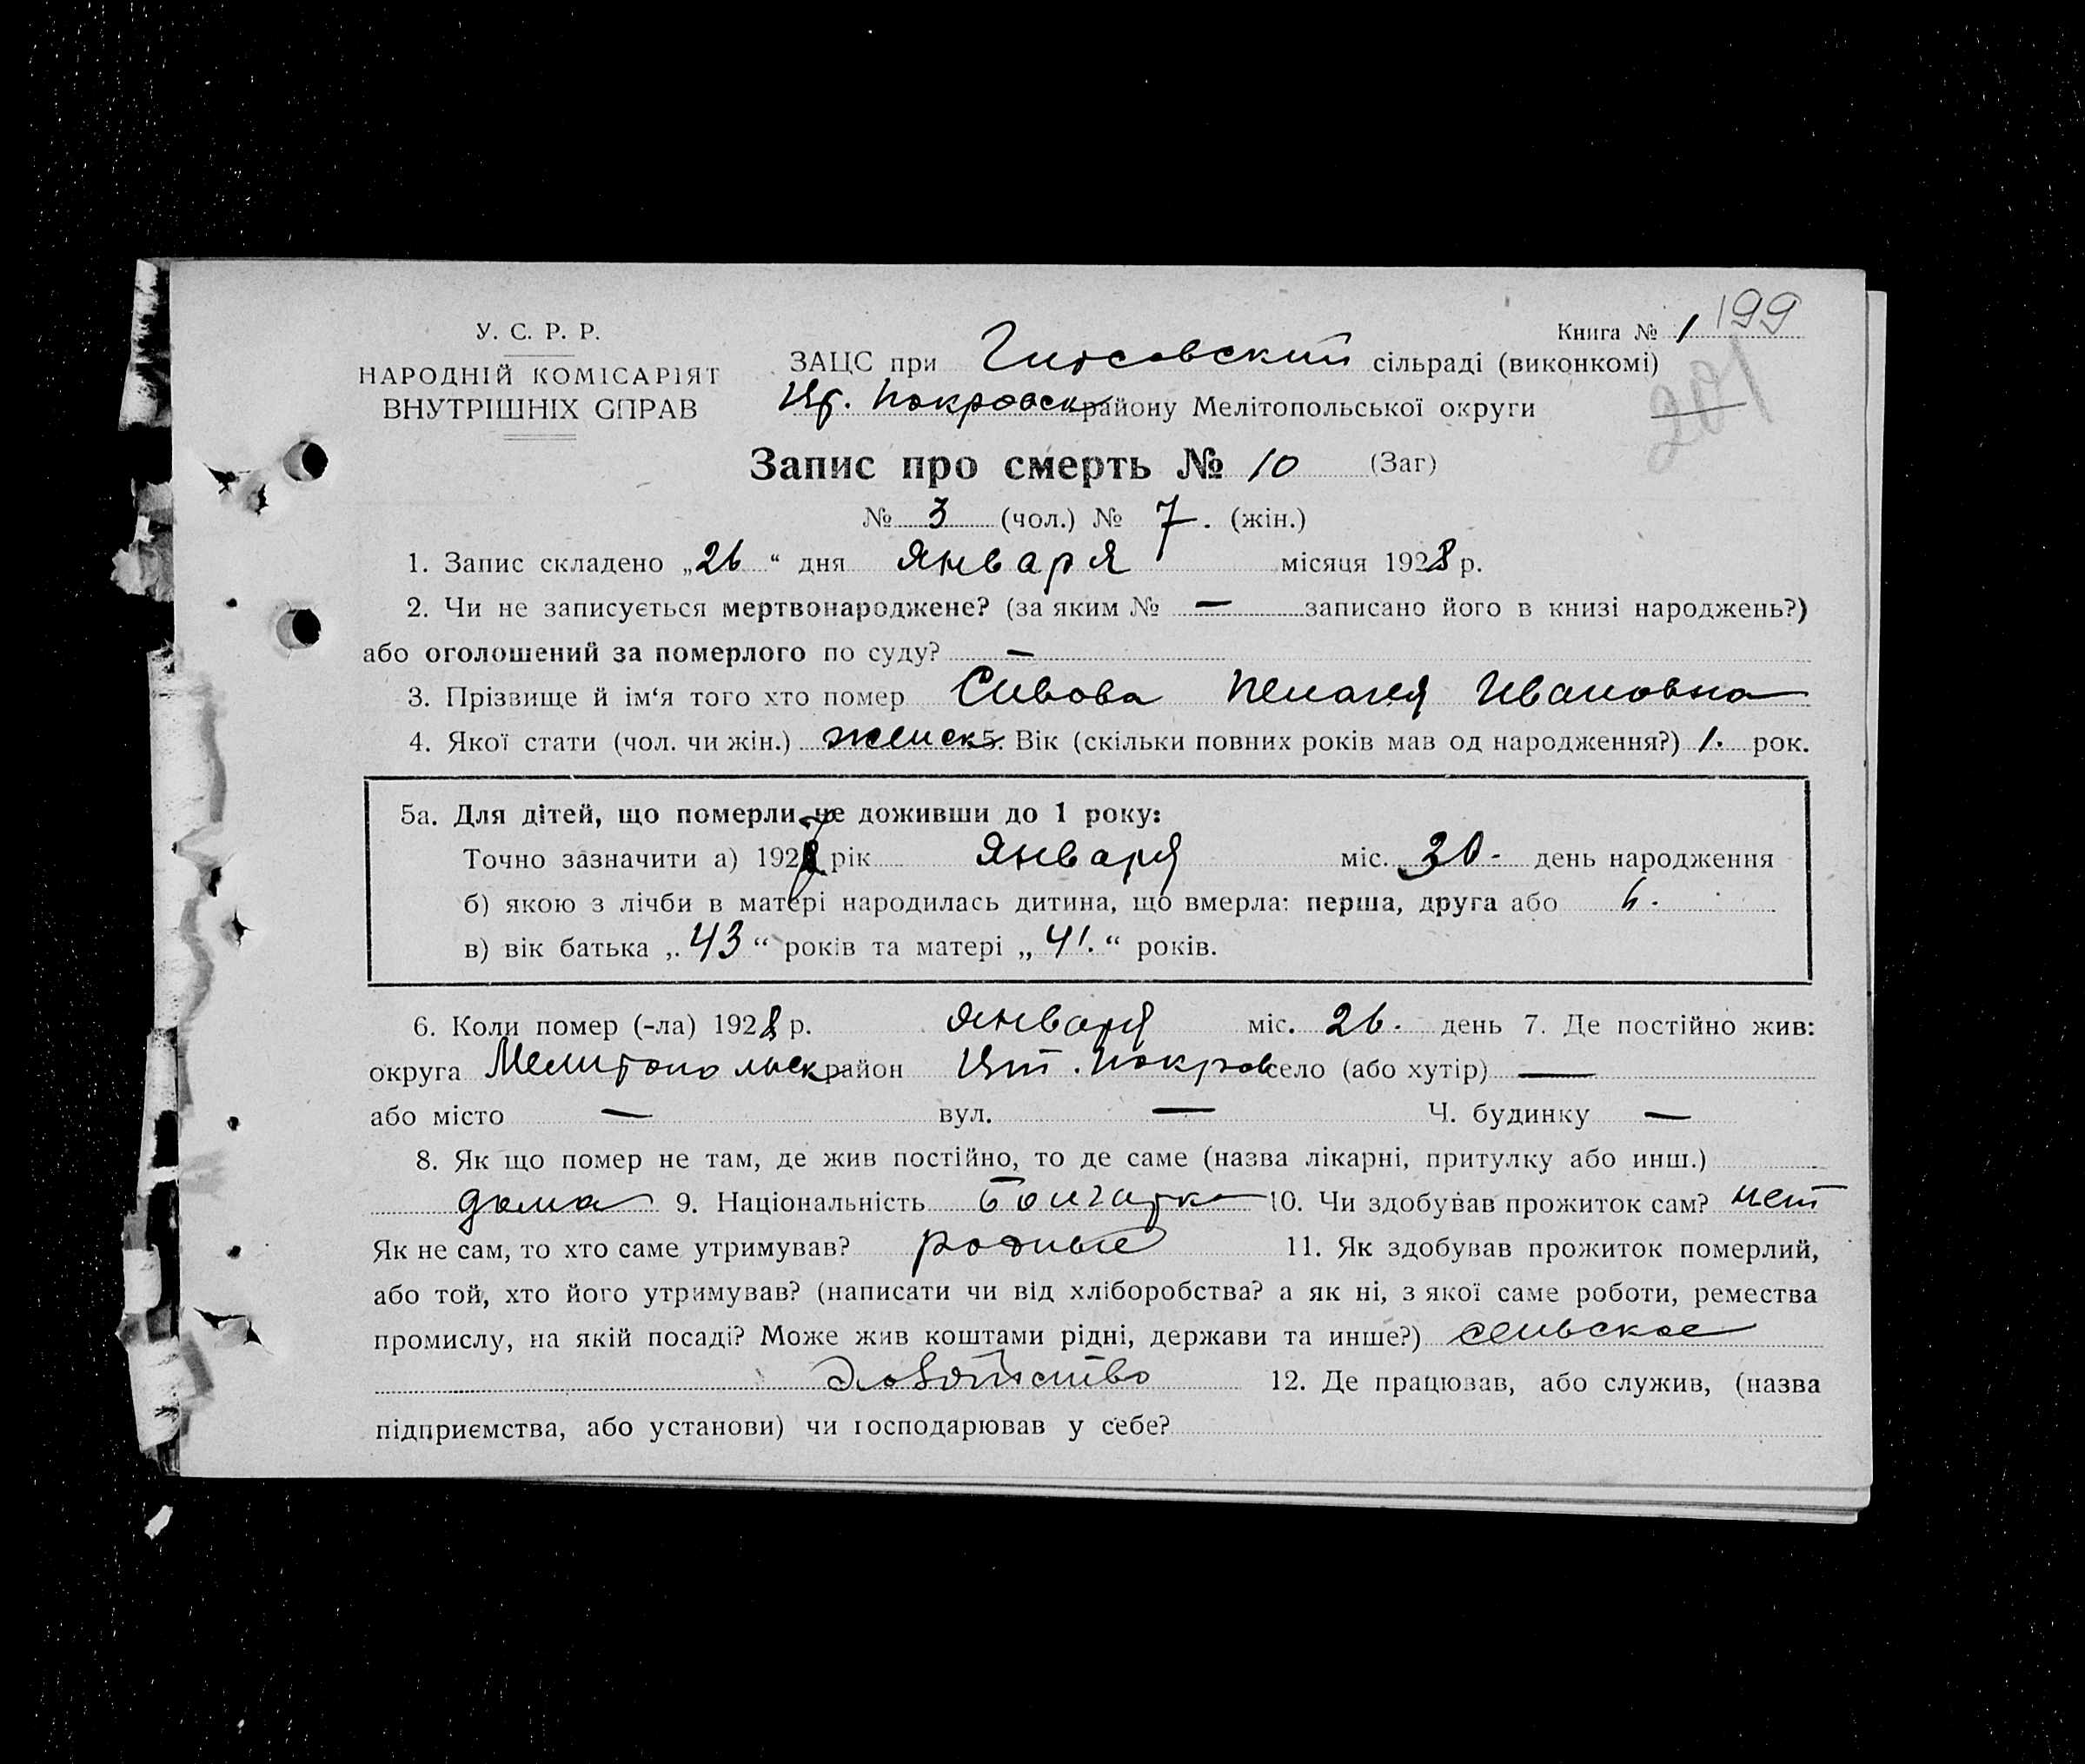 У. С. Р. Р.
НАРОДНІЙ КОМІСАРІЯТ
ВНУТРІШНІХ СПРАВ
Книга № 1 199
201
ЗАЦС при Гирсовский сільраді (виконкомі)
Цр. Покровск району Мелітопольської округи
Запис про смерть № 10 (Заг)
№ 3 (чол.) № 7. (жін.)
1. Запис складено „26“ дня Января місяця 1928 р.
2. Чи не записується мертвонароджене? (за яким № — записано його в книзі народжень?)
або оголошений за померлого по суду? —
3. Прізвище й ім‘я того хто помер Сивова Пелагея Ивановна
4. Якої стати (чол. чи жін.) женск 5. Вік (скільки повних років мав од народження?) 1. рок.
5а. Для дітей, що померли не доживши до 1 року:
Точно зазначити а) 1927 рік Января міс. 30 - день народження
б) якою з лічби в матері народилась дитина, що вмерла: перша, друга або 6.
в) вік батька „43“ років та матері „41.“ років.
6. Коли помер (-ла) 1928 р. января міс. 26. день 7. Де постійно жив:
округа Мелитопольск район Цт. Покров село (або хутір) —
або місто — вул. — Ч. будинку —
8. Як що помер не там, де жив постійно, то де саме (назва лікарні, притулку або инш.)
дома 9. Національність Болгарка 10. Чи здобував прожиток сам? нет
Як не сам, то хто саме утримував? родные 11. Як здобував прожиток померлий,
або той, хто його утримував? (написати чи від хліборобства? а як ні, з якої саме роботи, ремества
промислу, на якій посаді? Може жив коштами рідні, держави та инше?) сельское
хозяйство 12. Де працював, або служив, (назва
підприємства, або установи) чи господарював у себе?